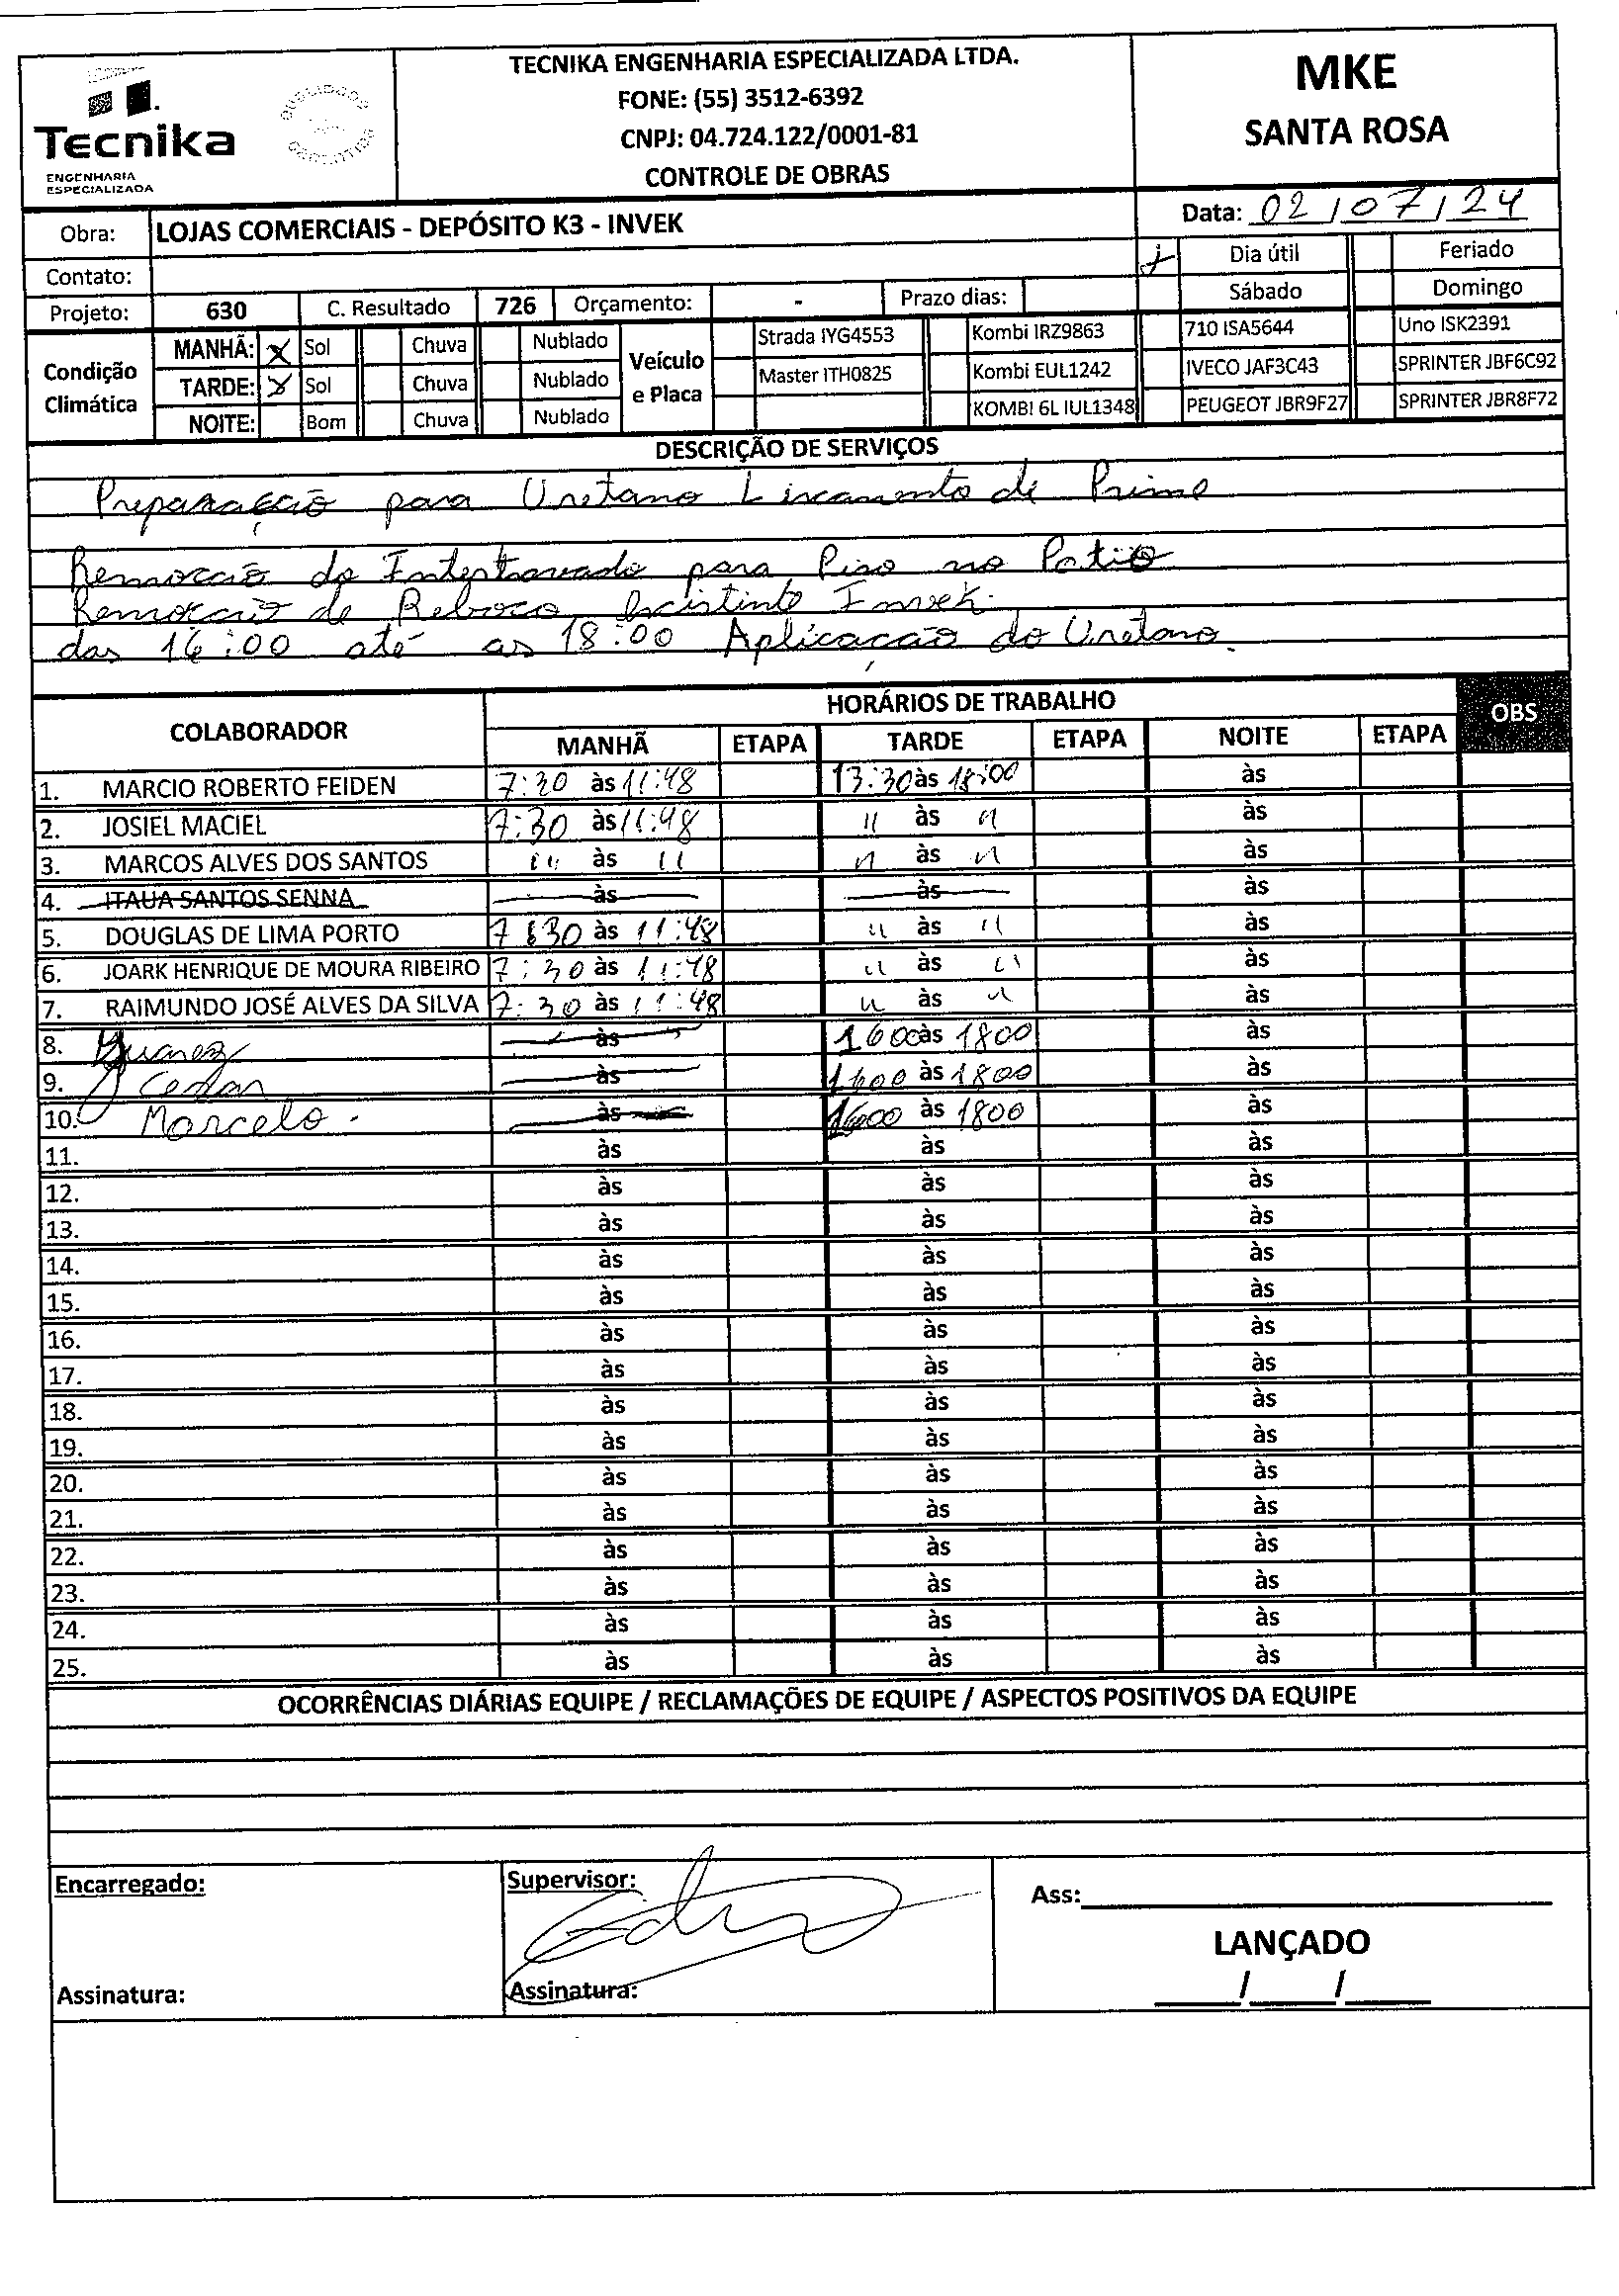 TECNIKA ENGENHARIA ESPECIALIZADA LTDA.
FONE: (55) 3512-6392
CNPJ: 04.724.122/0001-81
CONTROLE DE OBRAS
Tecnika
ENGENHARIA
ESPECIALIZADA
MKE
SANTA ROSA
Obra: LOJAS COMERCIAIS - DEPÓSITO K3 - INVEK
Data: 02/07/24
Contato:
Dia útil Feriado
Projeto: 630 C. Resultado 726 Orçamento: - Prazo dias:
Sábado Domingo
Condição Climática
MANHÃ: X Sol Chuva Nublado
TARDE: X Sol Chuva Nublado
NOITE: Bom Chuva Nublado
Veículo e Placa
Strada IYG4553 Kombi IRZ9863 710 ISA5644 Uno ISK2391
Master ITH0825 Kombi EUL1242 IVECO JAF3C43 SPRINTER JBF6C92
KOMBI 6L IUL1348 PEUGEOT JBR9F27 SPRINTER JBR8F72
DESCRIÇÃO DE SERVIÇOS
Preparação para Uretano Lixamento de Prime
Remoção do Intertravado para Piso no Patio
Remoção de Reboco Existinte Invek.
das 16:00 até as 18:00 Aplicação do Uretano.
COLABORADOR HORÁRIOS DE TRABALHO OBS
MANHÃ ETAPA TARDE ETAPA NOITE ETAPA
1. MARCIO ROBERTO FEIDEN 7:30 às 11:48 13:30 às 18:00 às
2. JOSIEL MACIEL 7:30 às 11:48 " às " às
3. MARCOS ALVES DOS SANTOS " às " " às " às
4. ITAUA SANTOS SENNA às às às
5. DOUGLAS DE LIMA PORTO 7:30 às 11:48 " às " às
6. JOARK HENRIQUE DE MOURA RIBEIRO 7:30 às 11:48 " às " às
7. RAIMUNDO JOSÉ ALVES DA SILVA 7:30 às 11:48 " às " às
8. Juarez às 1600 às 1800 às
9. Cezar às 1600 às 1800 às
10. Marcelo. às 1600 às 1800 às
11. às às às
12. às às às
13. às às às
14. às às às
15. às às às
16. às às às
17. às às às
18. às às às
19. às às às
20. às às às
21. às às às
22. às às às
23. às às às
24. às às às
25. às às às
OCORRÊNCIAS DIÁRIAS EQUIPE / RECLAMAÇÕES DE EQUIPE / ASPECTOS POSITIVOS DA EQUIPE
Encarregado: Supervisor: Ass:
LANÇADO
Assinatura: Assinatura: / /